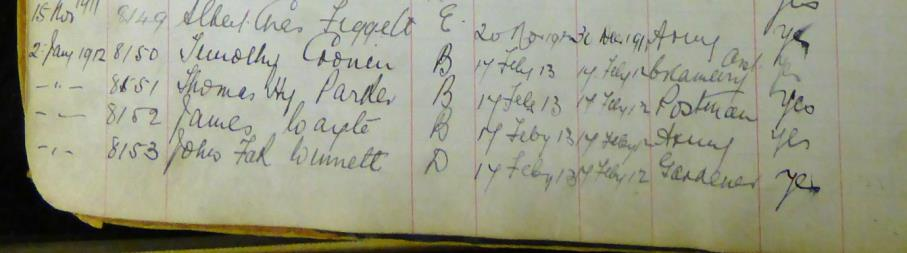 yes
15 Nov 1911 8149 Albert Chas Liggett E. 20 Nov 1912 Army yes
2 Jany 1912 8150 Timothy Cronin B 17 Feby 13 17 Feby 12 Creamery Asst. yes
-"- 8151 Thomas Hy Parker B 17 Feb 13 17 Feby 12 Postman yes
-"- 8152 James B 17 Feby 13 17 Feby 12 Army yes
-"- 8153 John Winnett D 17 Feby 13 17 Feby 12 Gardener yes